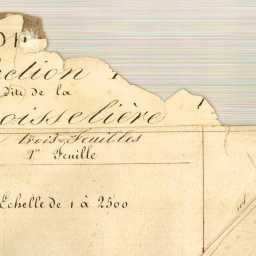 ction
Dite de la
oisselière
trois Feuilles
1re Feuille
Echelle de 1 à 2500